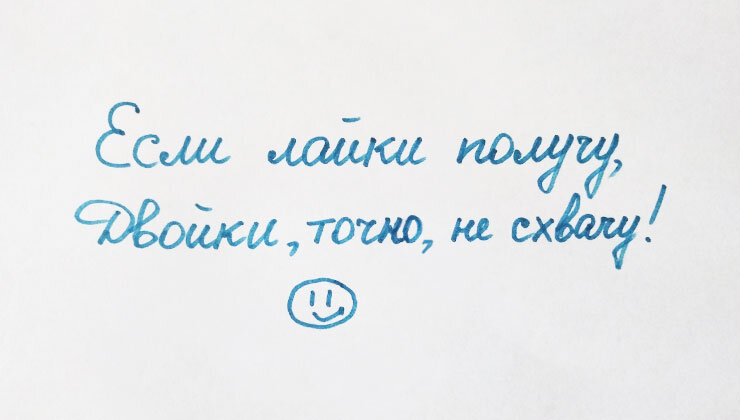 Если лайки получу,
Двойки, точно, не схвачу!